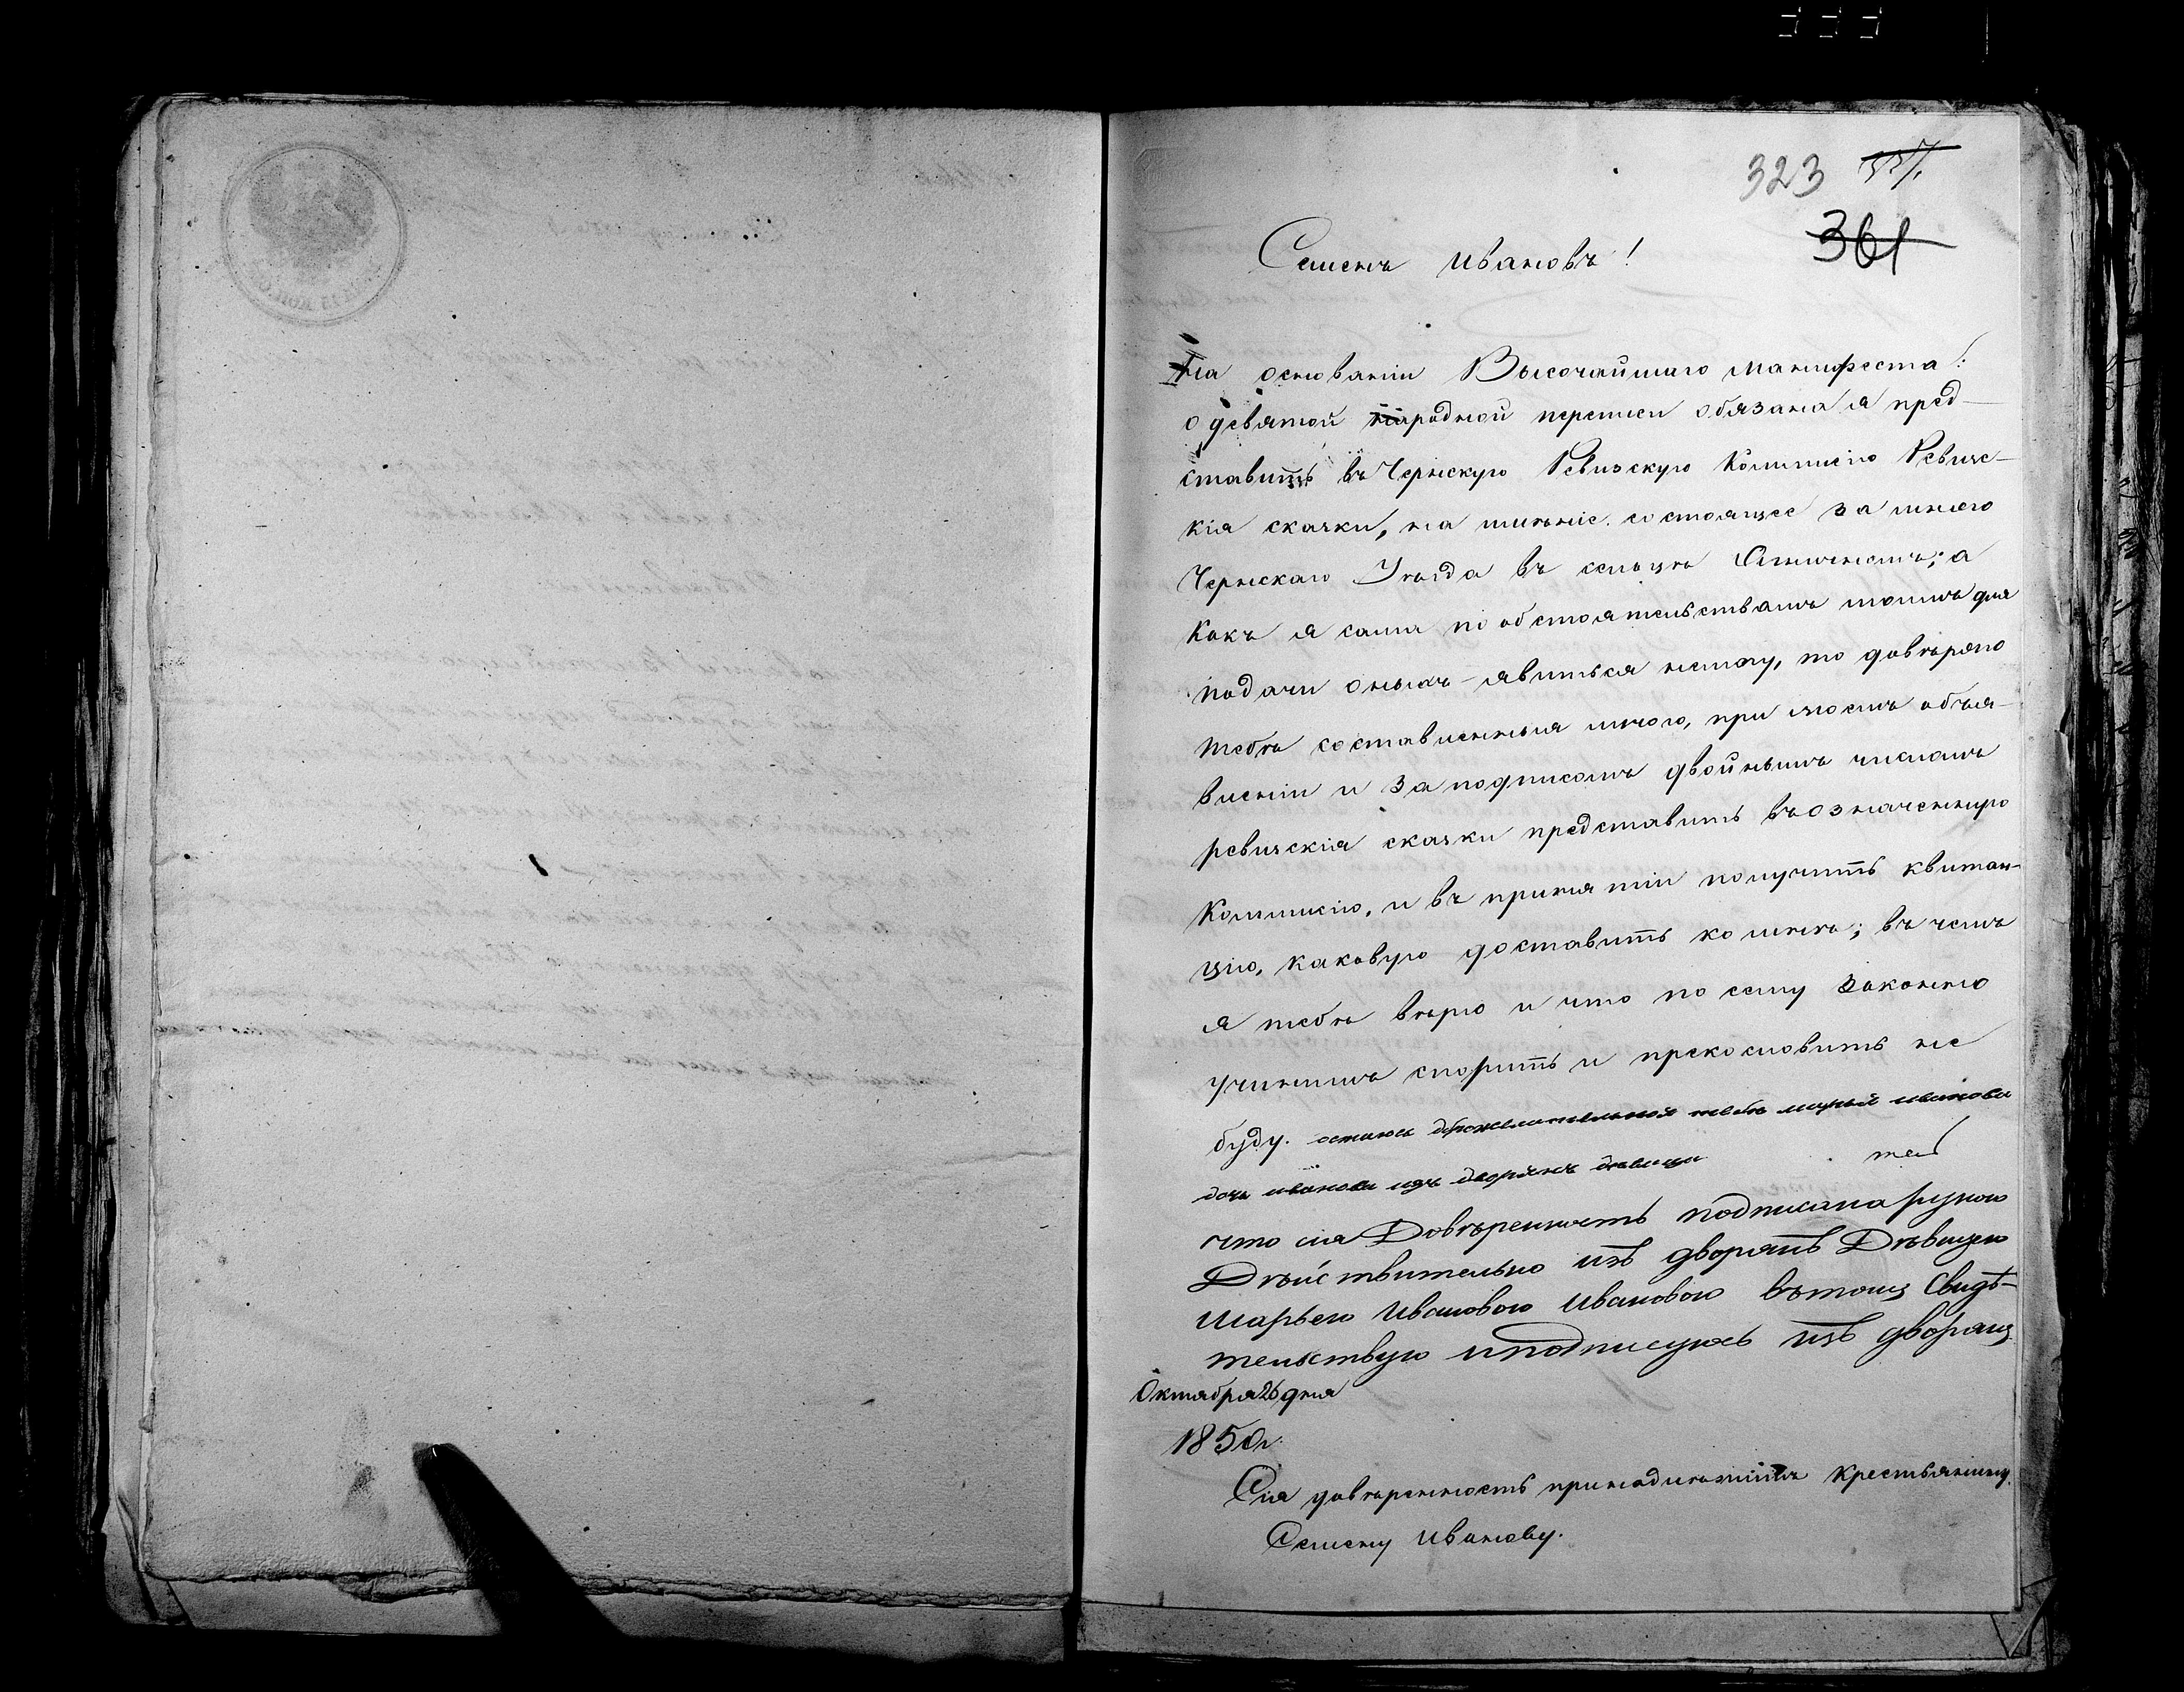 323
361
Семенъ Ивановъ!
На основаніи Высочайшаго манифеста
о девятой народной переписи обязана я пред-
ставить въ Чернскую Ревизскую Коммисію Ревизс-
кія скаски, на имѣніе состоящее за мною
Чернскаго Уѣзда въ сельцѣ а
Какъ я сама по обстоятельствамъ моимъ для
подачи оныхъ явиться немогу, то довѣряю
тебѣ составленныя мною, при моемъ объя-
вленіи и за подписомъ двойнымъ числомъ
ревизскія скаски представить въ означенную
Коммисію, и въ принятіи получить квитан-
цію, каковую доставить ко мнѣ; въ чемъ
я тебѣ вѣрю и что по сему законно
учинишъ спорить и прекословить не
буду. остаюсь доброжелательной тебѣ марья иванова
дочь иванова изъ дворянъ девица
что сія Довѣренность подписана рукою
Дѣйствительно изъ дворянъ Дѣвицею
Марьею Ивановою Ивановою вътомъ Свидѣ-
тельствую иподписуюсь изъ дворянъ
Октября 26 дня
1850 г.
Сія довѣренность принадлежитъ Крестьянину
Семену Иванову.